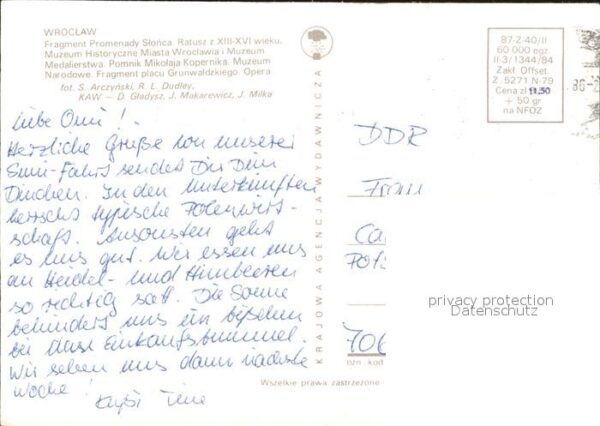 WROCŁAW
Fragment Promenady Słońca. Ratusz z XIII-XVI wieku.
Muzeum Historyczne Miasta Wrocławia i Muzeum
Medalierstwa. Pomnik Mikołaja Kopernika. Muzeum
Narodowe. Fragment placu Grunwaldzkiego. Opera
fot. S. Arczyński, R. L. Dudley,
KAW — D. Gładysz, J. Makarewicz, J. Milka
Liebe Omi!
Herzliche Grüße von unserer
Fahrt sendet Dir Dein
In den Unterkünften
herrscht typische Polenwirt-
schaft. Ansonsten geht
es uns gut. Wir essen uns
an Heidel- und Himbeeren
so richtig satt. Die Sonne
behindert uns ein bißchen
bei dem Einkaufsbummel.
Wir sehen uns dann nächste
Woche!
KRAJOWA AGENCJA WYDAWNICZA
87-Z-40/II
60 000 egz.
II-3/1344/84
Zakł. Offset.
Z. 5271 N-79
Cena zł 11,50
+ 50 gr
na NFOZ
DDR
privacy protection
Datenschutz
Wszelkie prawa zastrzeżone